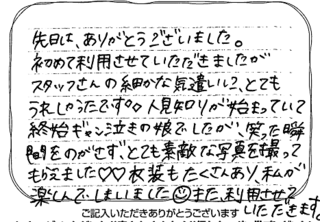 先日は、ありがとうございました。
初めて利用させていただきましたが
スタッフさんの細かな気遣いに、とても
うれしかったです♡人見知りが始まっていて
終始ギャン泣きの娘でしたが、笑った瞬
間をのがせず、とても素敵な写真を撮って
もらえました♡♡衣装もたくさんあり、私が
楽しんでしまいました☺また、利用させて
いただきます。
ご記入いただきありがとうございます